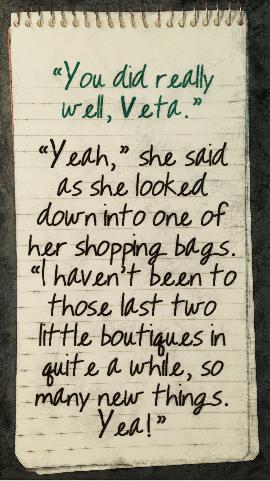 “You did really
well, Veta.”
“Yeah,” she said
as she looked
down into one of
her shopping bags.
“I haven’t been to
those last two
little boutiques in
quite a while, so
many new things.
Yea!”